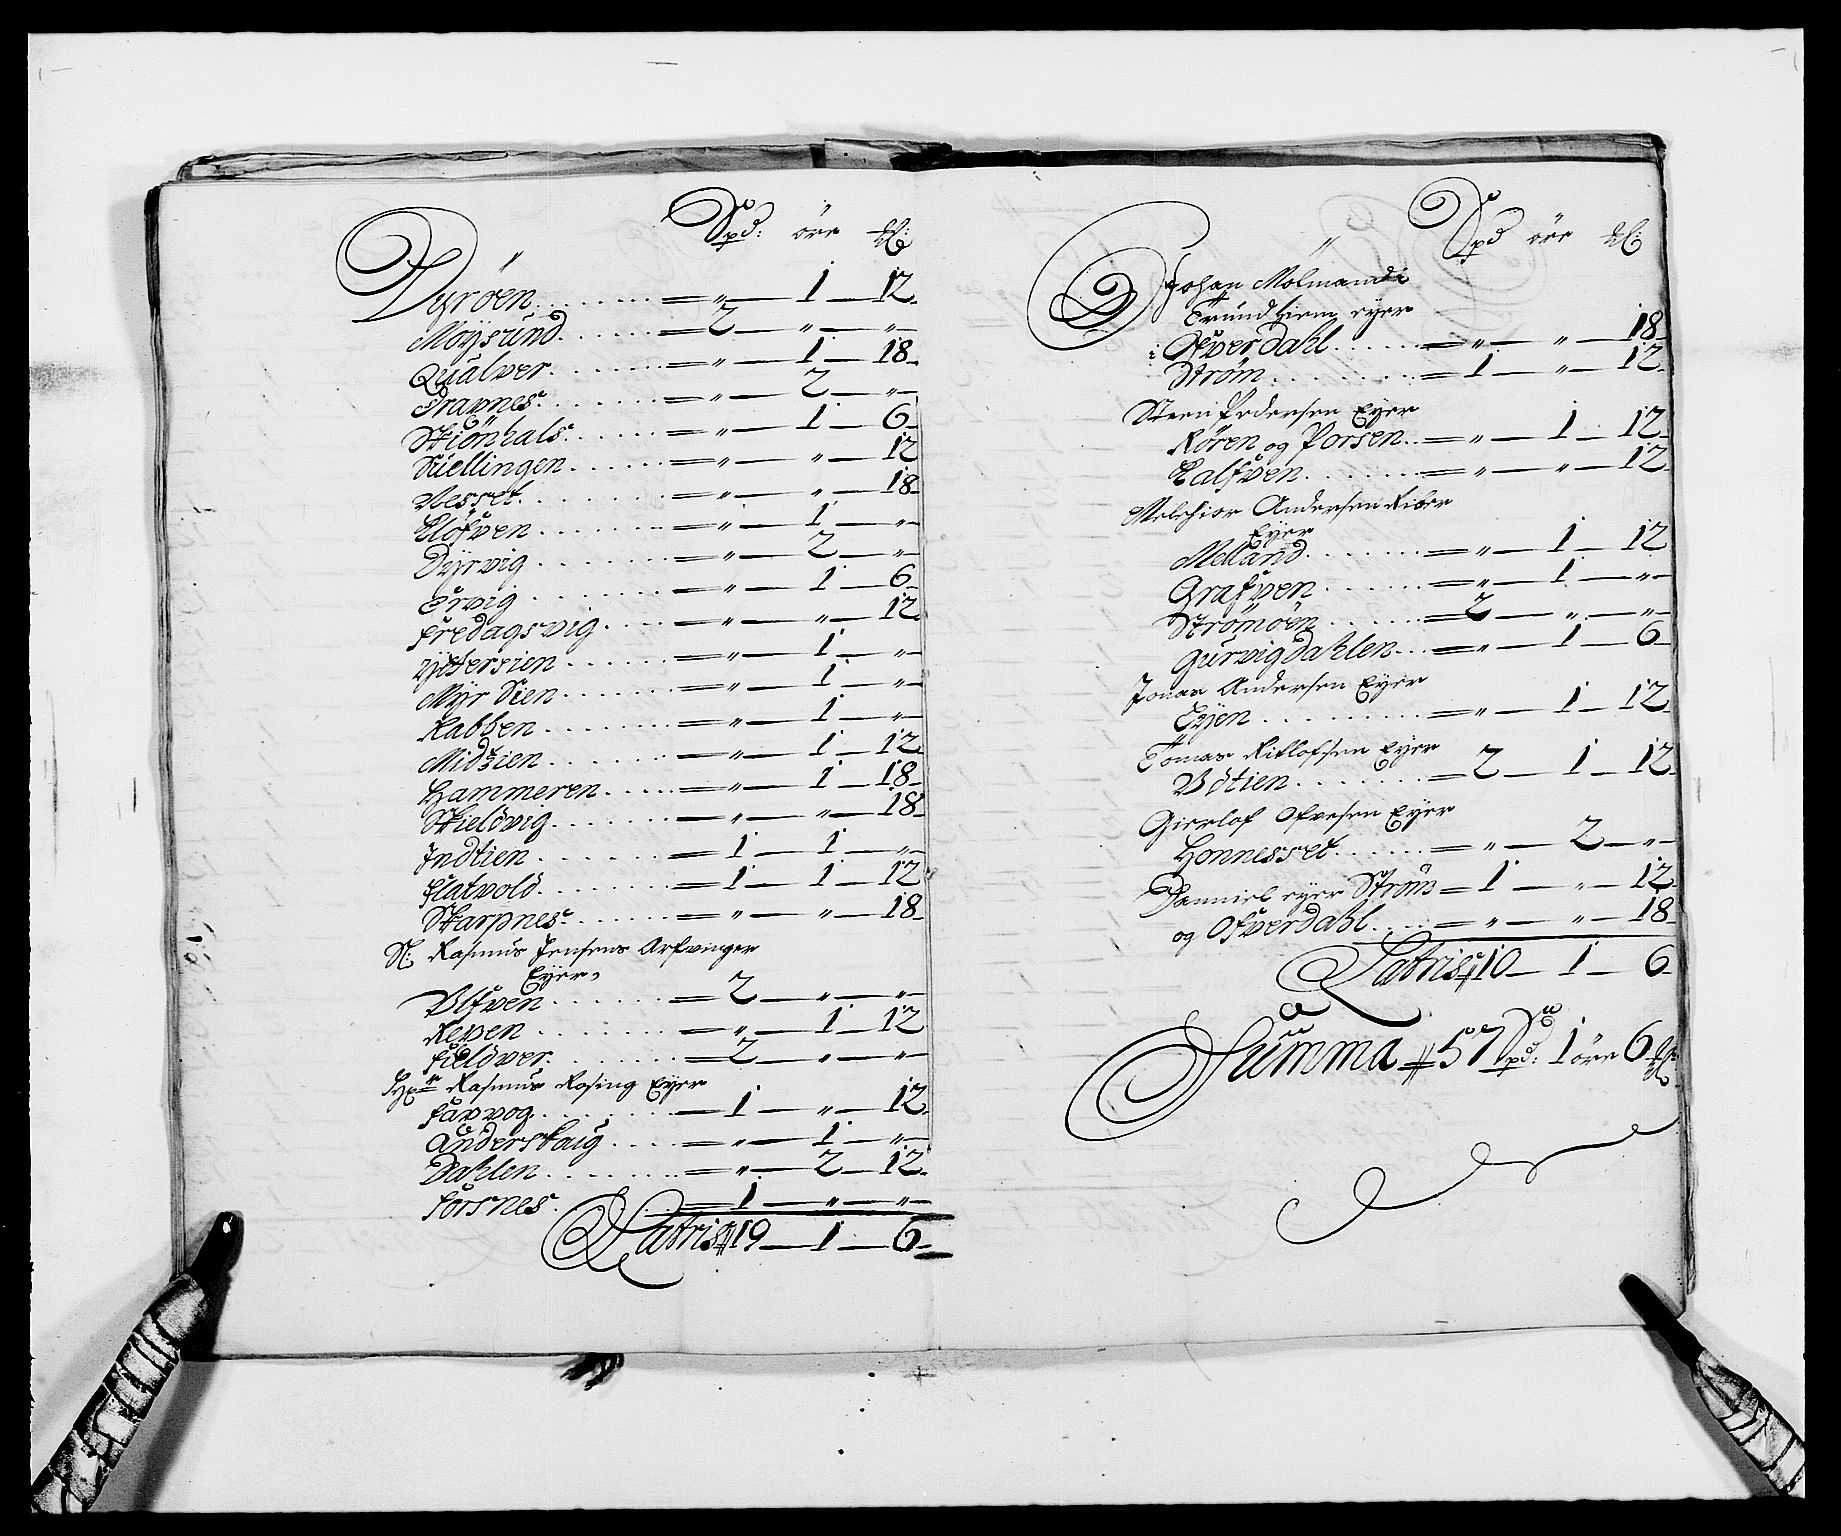 Spd: öre
Dyröen = „ — 1 — 12
Möysund = 2 — „ — „
Qualver = „ — 1 — 18
Dravnes: = „ — 2 — „
Skiönhals: = „ — 1 — 6
Kiellingen = „ — „ — 12
Vesset = „ — „ — 18
Klöfven = „ — 1 — „
Dyrvig = „ — 2 — „
Ervig = „ — 1 — 6
Fredagsvig = „ — „ — 12
Yttersien = „ — 1 — „
Myr Sien = „ — 1 — „
Kabben = „ — 1 — „
Midsien = „ — 1 — 12
Hammeren = „ — 1 — 18
Skieldvig = „ — „ — 18
Indtien = 1 — 1 — „
Flatvold = 1 — 1 — 12
Skarpnes: = „ — „ — 18
Sl: Rasmus Jensens Arfvinger
Eyer,
Ulfven = 2 — „ — „
Reven = „ — 1 — 12
Fieldver = 2 — „ — „
Rasmus Rosing Eyer
Favvog = 1 — „ — 12
Anderskaug = „ — 1 — „
Dahlen = „ — 2 — 12
Forsnes = 1 — „ — „
Latris 19 — 1 — 6
Spd öre
Johan Molmand i
Trundhiem eyer
i Ofverdahl = „ — „ — 18
Ström = 1 — „ — 12
Steen Pedersen Eyer
Rören og Porsen = „ — 1 — 12
Kalfven = „ — „ — 12
Melchior Andersen Riber
Eyer
Melland = „ — 1 — 12
Grafven = „ — 1 — „
Strömöen = 2 — „ — „
Gurvigdahlen = „ — 1 — 6
Jonas Andersen Eyer
Eyen = „ — 1 — 12
Tomas Eyer
Udtien = 2 — 1 — 12
Gierlof Ofvesen Eyer
Honnesset = „ — 2 — „
Danniel eyer Ström = 1 — „ — 12
og Ofverdahl = „ — „ — 18
Latris 10 — 1 — 6
Summa 57 Spd: 1 öre 6